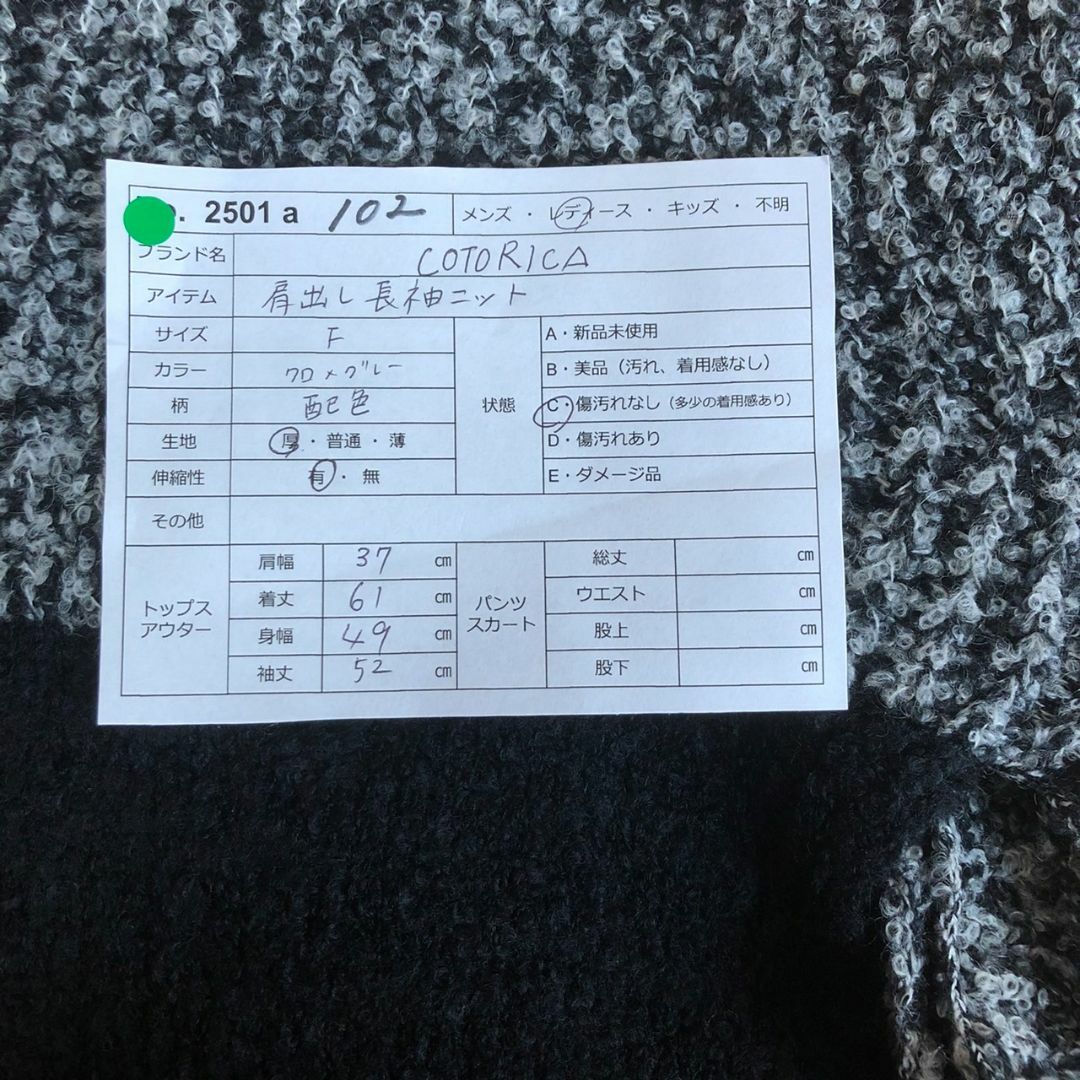 o. 2501 a 102 メンズ ・ レディース ・ キッズ ・ 不明
ブランド名 COTORICA
アイテム 肩出し長袖ニット
サイズ F
カラー クロ×グレー
柄 配色
生地 厚 ・ 普通 ・ 薄
伸縮性 有 ・ 無
状態
A・新品未使用
B・美品（汚れ、着用感なし）
C・傷汚れなし（多少の着用感あり）
D・傷汚れあり
E・ダメージ品
その他
トップス
アウター
肩幅 37 ㎝
着丈 61 ㎝
身幅 49 ㎝
袖丈 52 ㎝
パンツ
スカート
総丈 ㎝
ウエスト ㎝
股上 ㎝
股下 ㎝